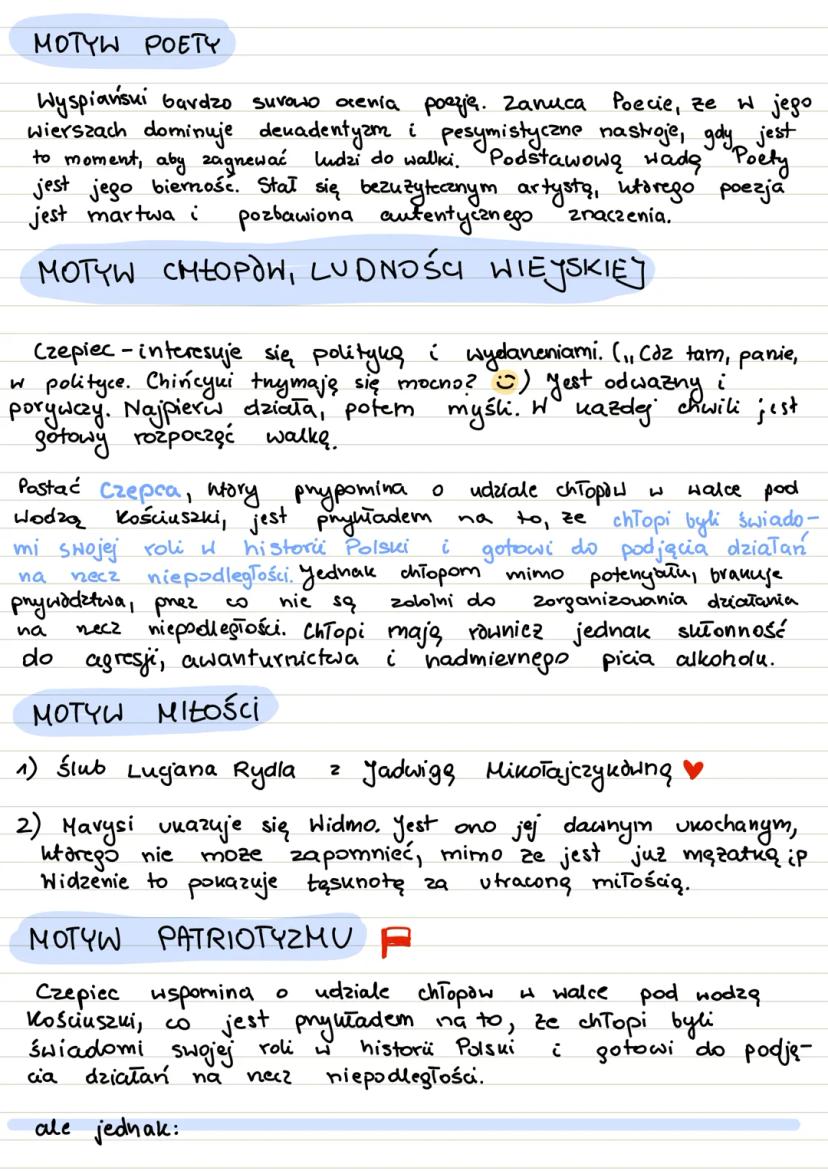 MOTYW POETY
Wyspiański bardzo surowo ocenia poezję. Zarzuca Poecie, że w jego
wierszach dominuje dekadentyzm i pesymistyczne nastroje, gdy jest
to moment, aby zagrzewać ludzi do walki. Podstawową wadą Poety
jest jego bierność. Stał się bezużytecznym artystą, którego poezja
jest martwa i pozbawiona autentycznego znaczenia.
MOTYW CHŁOPÓW, LUDNOŚCI WIEJSKIEJ
Czepiec - interesuje się polityką i wydarzeniami. („Cóż tam, panie,
w polityce. Chińcyki trzymają się mocno? ☺) Jest odważny i
porywczy. Najpierw działa, potem myśli. W każdej chwili jest
gotowy rozpocząć walkę.
Postać Czepca, który przypomina o udziale chłopów w walce pod
wodzą Kościuszki, jest przykładem na to, że chłopi byli świado-
mi swojej roli w historii Polski i gotowi do podjęcia działań
na rzecz niepodległości. Jednak chłopom mimo potencjału, brakuje
przywództwa, przez co nie są zdolni do zorganizowania działania
na rzecz niepodległości. Chłopi mają również jednak skłonność
do agresji, awanturnictwa i nadmiernego picia alkoholu.
MOTYW MIŁOŚCI
1) Ślub Lucjana Rydla z Jadwigą Mikołajczykówną ♥
2) Marysi ukazuje się Widmo. Jest ono jej dawnym ukochanym,
którego nie może zapomnieć, mimo że jest już mężatką ;p
Widzenie to pokazuje tęsknotę za utraconą miłością.
MOTYW PATRIOTYZMU
Czepiec wspomina o udziale chłopów w walce pod wodzą
Kościuszki, co jest przykładem na to, że chłopi byli
świadomi swojej roli w historii Polski i gotowi do podję-
cia działań na rzecz niepodległości.
ale jednak: